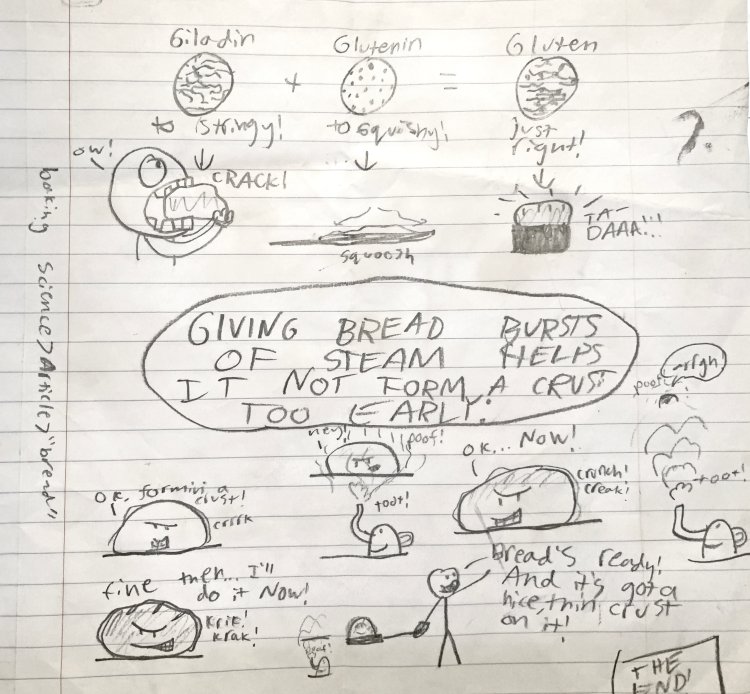 Giladin + Glutenin = Gluten
to stringy!
to squishy!
just
right!
ow!
CRACK!
squoosh
TA-
DAAA!!!
baking science>Article>"bread"
GIVING BREAD BURSTS
OF STEAM HELPS
IT NOT FORM A CRUST
TOO EARLY.
OK, formin' a
crust!
crrrk
hey!
poof!
toot!
OK... NOW!
crunch!
creak!
arrgh
poof!
toot!
fine then... I'll
do it NOW!
krik!
krak!
poof!
Bread's ready!
And it's got a
nice, thin crust
on it!
THE
END!